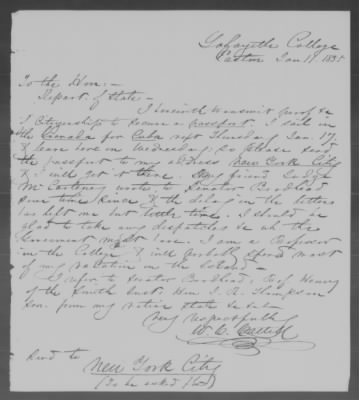 Lafayette College
Easton Jan 11 1855
To the Hon:—
Depart. of State—
I herewith transmit proof of
Citizenship to secure a passport. I sail in
the for Cuba next Thursday Jan. 17,
& leave here on Wednesday; so please send
the passport to my address New York City
& I will get it there. My friend Judge
McCartney wrote to Senator Brodhead
some time since & the delay in the letters
has left me but little time. I should be
glad to take any despatches to wh the
Government might have. I am a Professor
in the College & will probably spend most
of my vacation in the Island—
I refer to Senator Brodhead, Prof Henry
of the Smith. Inst. Hon. R. Thompson
Sen. from my native state &c &c
Very respectfully
W. C.
Send to
New York City
(To be called for)